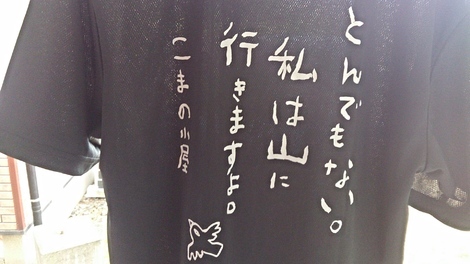 とんでもない。
私は山に
行きますよ。
こまの小屋